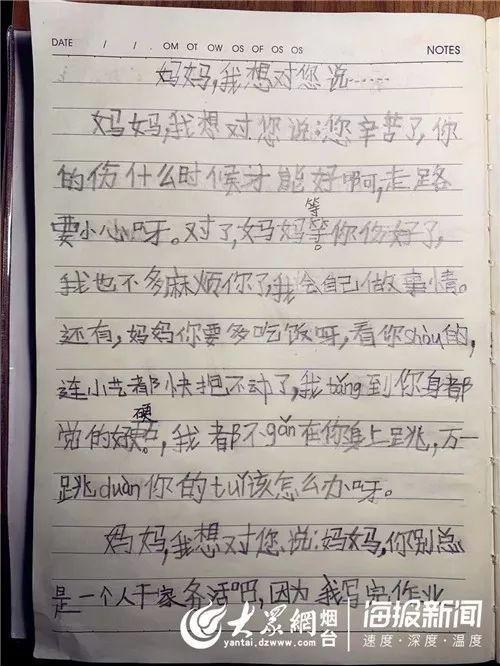 DATE / / . OM OT OW OS OF OS OS NOTES
妈妈,我想对您说……
妈妈,我想对您说:您辛苦了,你
的伤什么时候才能好啊,走路
等
要小心呀。对了,妈妈等。你伤好了,
我也不多麻烦你了,我会自己做事情。
还有,妈妈你要多吃饭呀,看你shòu的,
连小艺都快抱不动了,我tǎng到你身都
硬
觉的好。,我都不gǎn在你身上跳,万一
跳duàn你的tuǐ该怎么办呀。
妈妈,我想对您说:妈妈,你别总
是一个人干家务活吧,因为我写完作业,
大众网 烟台 海报新闻
yantai.dzwww.com 速度·深度·温度